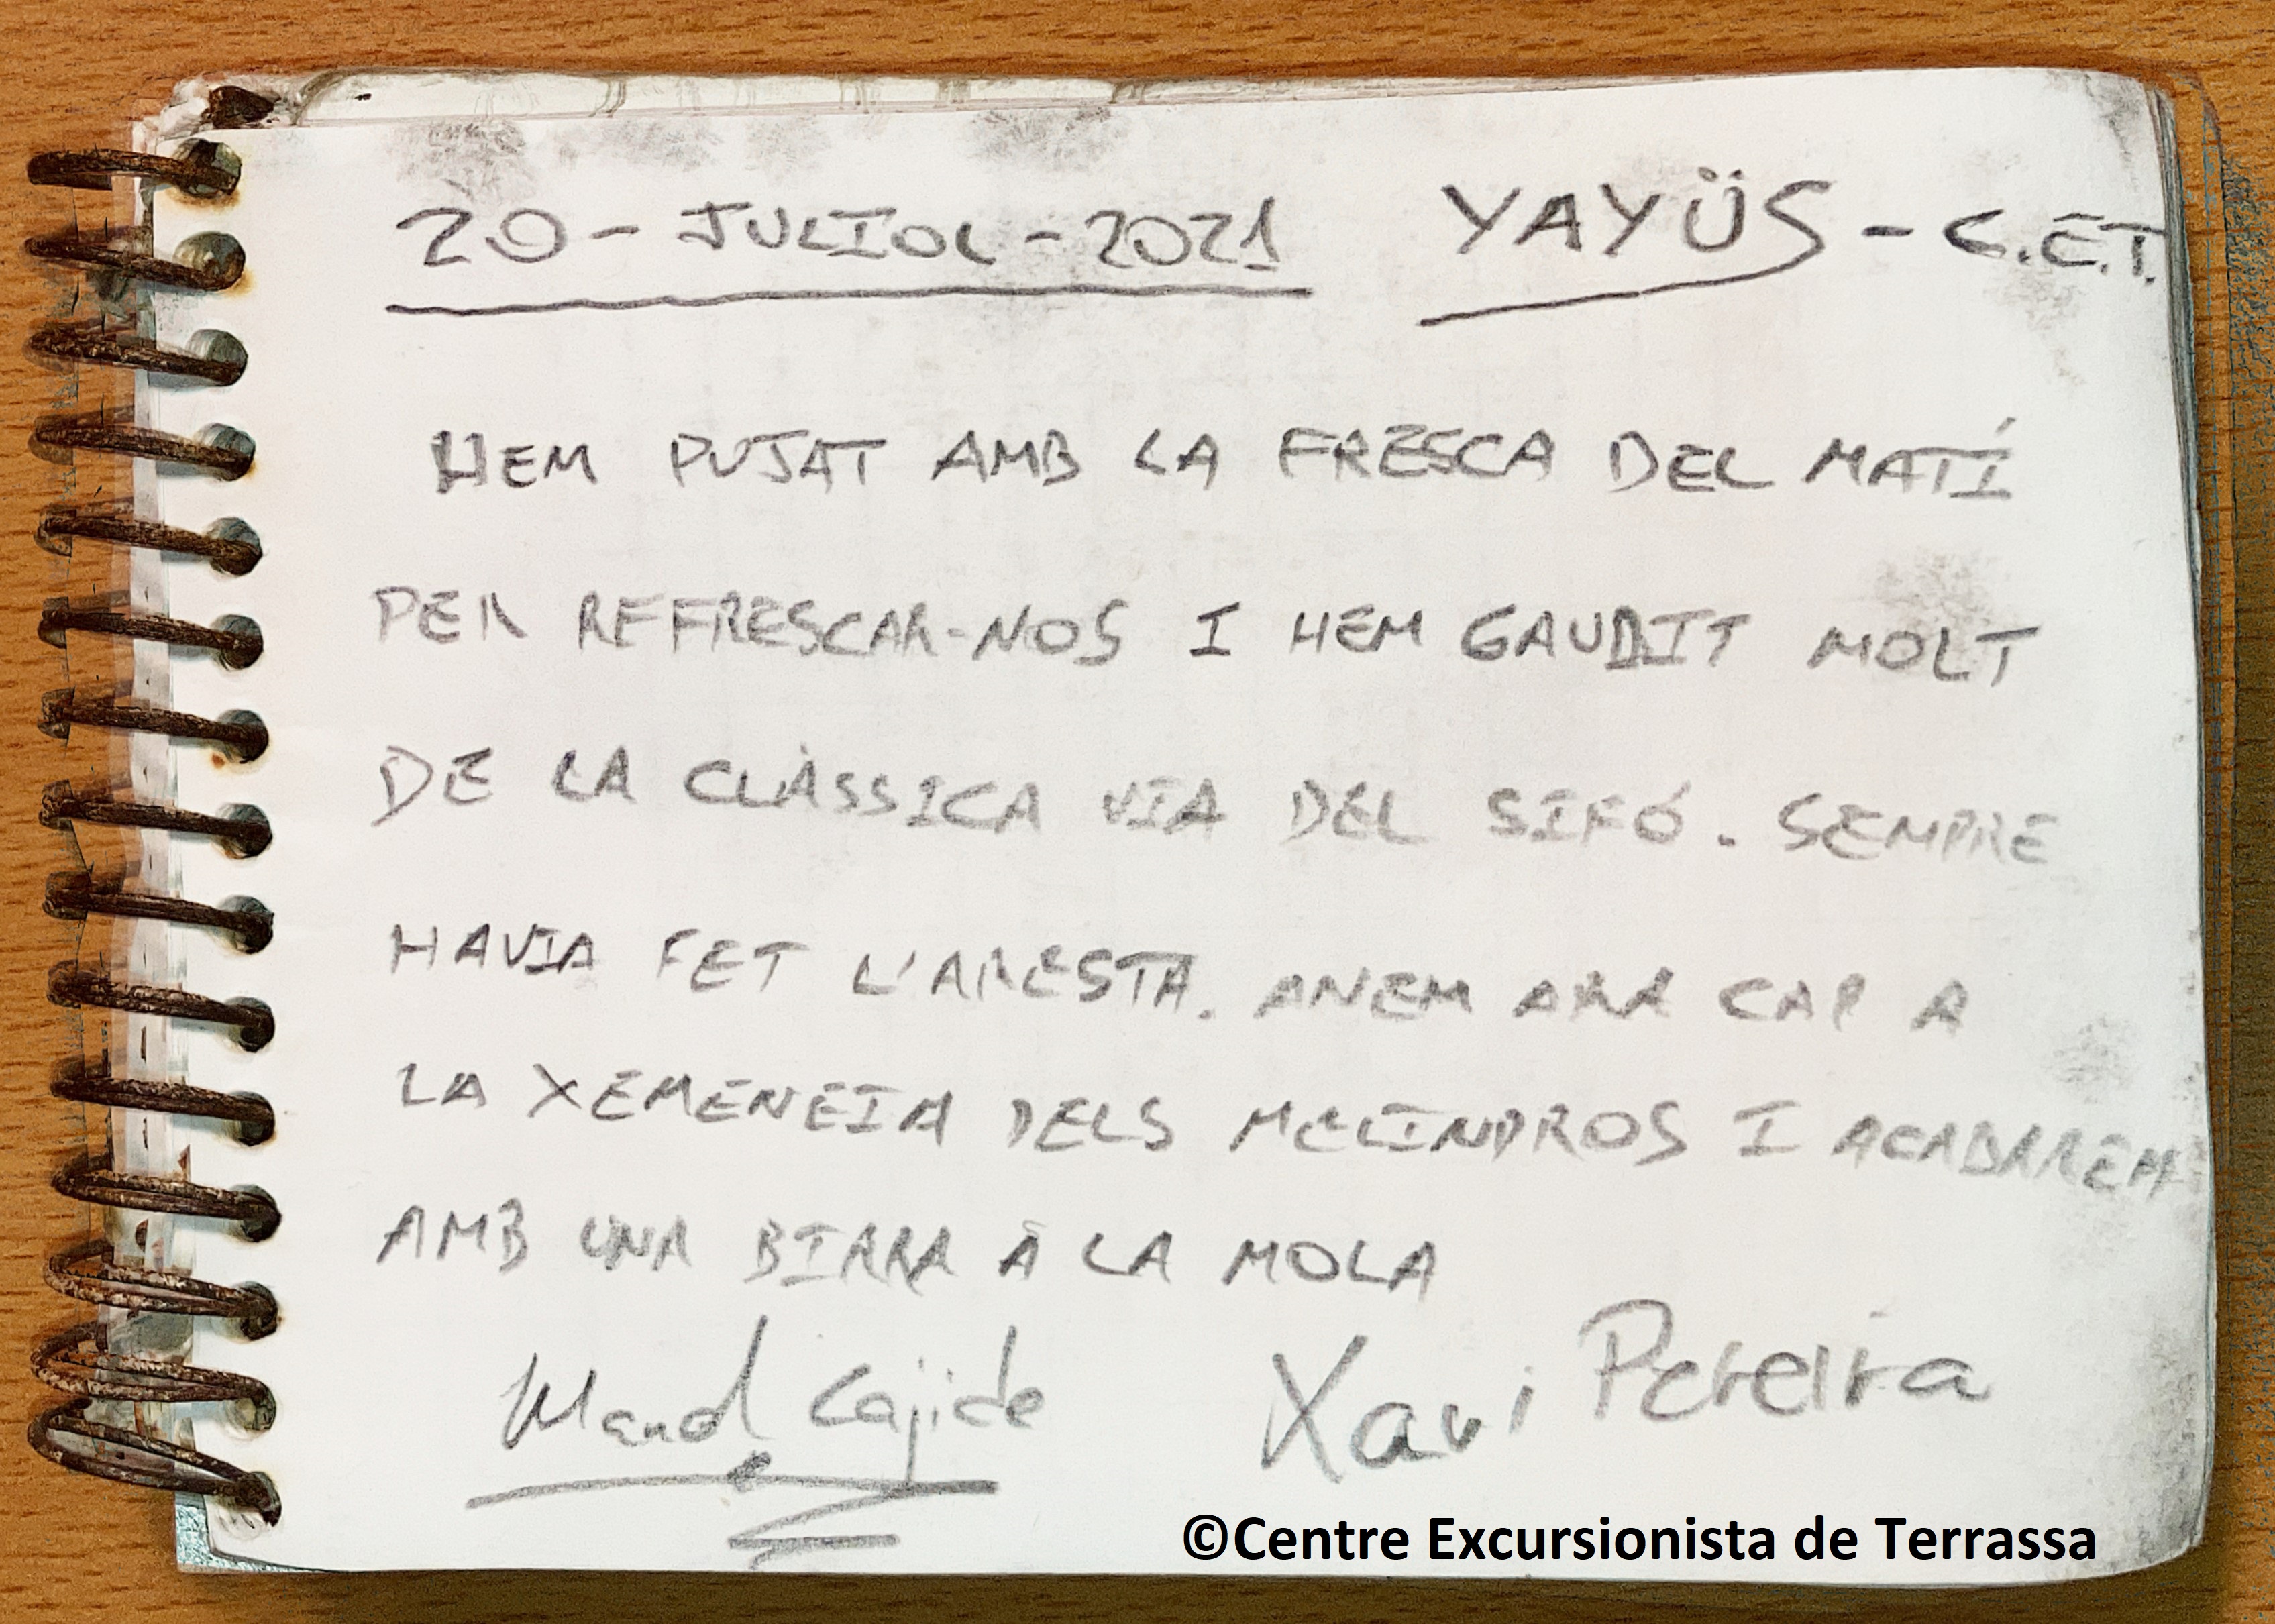 20-JULIOL-2021 YAYÜS-C.E.T.
HEM PUJAT AMB LA FRESCA DEL MATÍ
PER REFFRESCAR-NOS I HEM GAUDIT MOLT
DE LA CLÀSSICA VIA DEL SIFÓ. SEMPRE
HAVIA FET L'ARESTA. ANEM ARA CAP A
LA XEMENEIA DELS MELINDROS I ACABAREM
AMB UNA BIRRA A LA MOLA
Manol Cajide Xavi Pereira
©Centre Excursionista de Terrassa